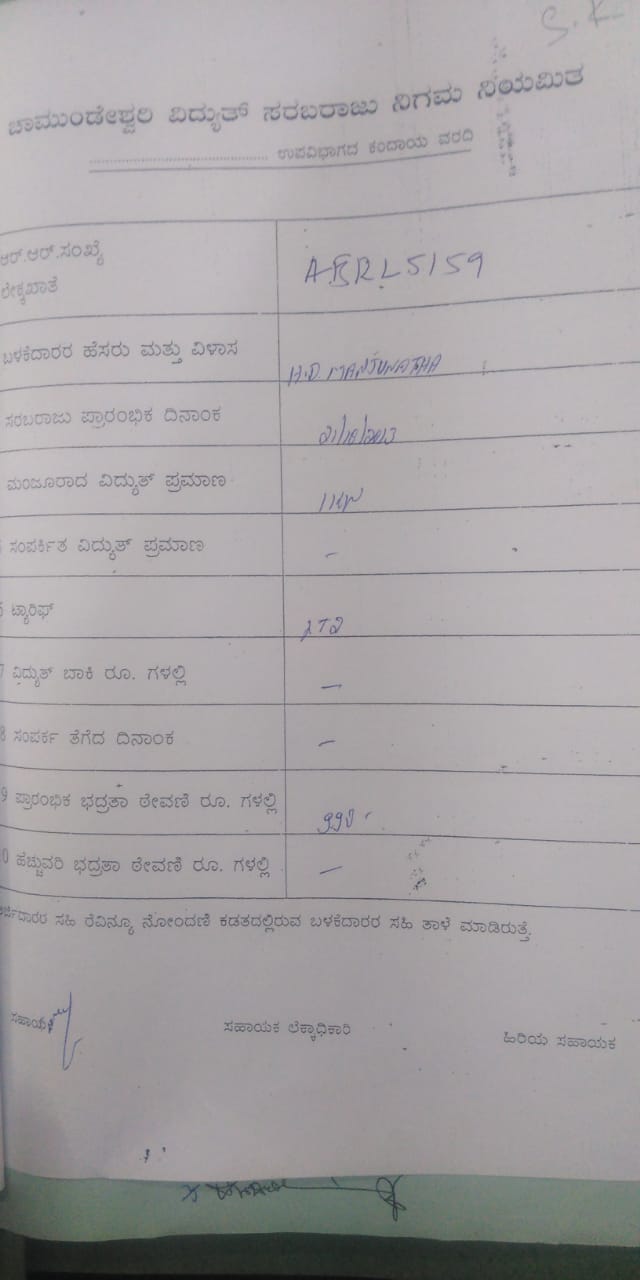 S.K
ಚಾಮುಂಡೇಶ್ವರಿ ವಿದ್ಯುತ್ ಸರಬರಾಜು ನಿಗಮ ನಿಯಮಿತ
........................................ ಉಪವಿಭಾಗದ ಕಂದಾಯ ವರದಿ
ಆರ್.ಆರ್.ಸಂಖ್ಯೆ
ಲೆಕ್ಕಖಾತೆ
ABRL5159
ಬಳಕೆದಾರರ ಹೆಸರು ಮತ್ತು ವಿಳಾಸ
H.D. MANJUNATHA
ಸರಬರಾಜು ಪ್ರಾರಂಭಿಕ ದಿನಾಂಕ
21/10/2013
ಮಂಜೂರಾದ ವಿದ್ಯುತ್ ಪ್ರಮಾಣ
1KW
ಸಂಪರ್ಕಿತ ವಿದ್ಯುತ್ ಪ್ರಮಾಣ
-
ಟ್ಯಾರಿಫ್
7 ವಿದ್ಯುತ್ ಬಾಕಿ ರೂ. ಗಳಲ್ಲಿ
-
8 ಸಂಪರ್ಕ ತೆಗೆದ ದಿನಾಂಕ
-
9 ಪ್ರಾರಂಭಿಕ ಭದ್ರತಾ ಠೇವಣಿ ರೂ. ಗಳಲ್ಲಿ
0 ಹೆಚ್ಚುವರಿ ಭದ್ರತಾ ಠೇವಣಿ ರೂ. ಗಳಲ್ಲಿ
-
ಅರ್ಜಿದಾರರ ಸಹಿ ರೆವಿನ್ಯೂ ನೋಂದಣಿ ಕಡತದಲ್ಲಿರುವ ಬಳಕೆದಾರರ ಸಹಿ ತಾಳೆ ಮಾಡಿರುತ್ತೆ.
ಸಹಾಯಕ ಸಹಾಯಕ ಲೆಕ್ಕಾಧಿಕಾರಿ ಹಿರಿಯ ಸಹಾಯಕ